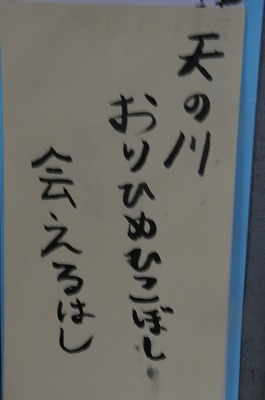 天の川
おりひめひこぼし
会えるはし